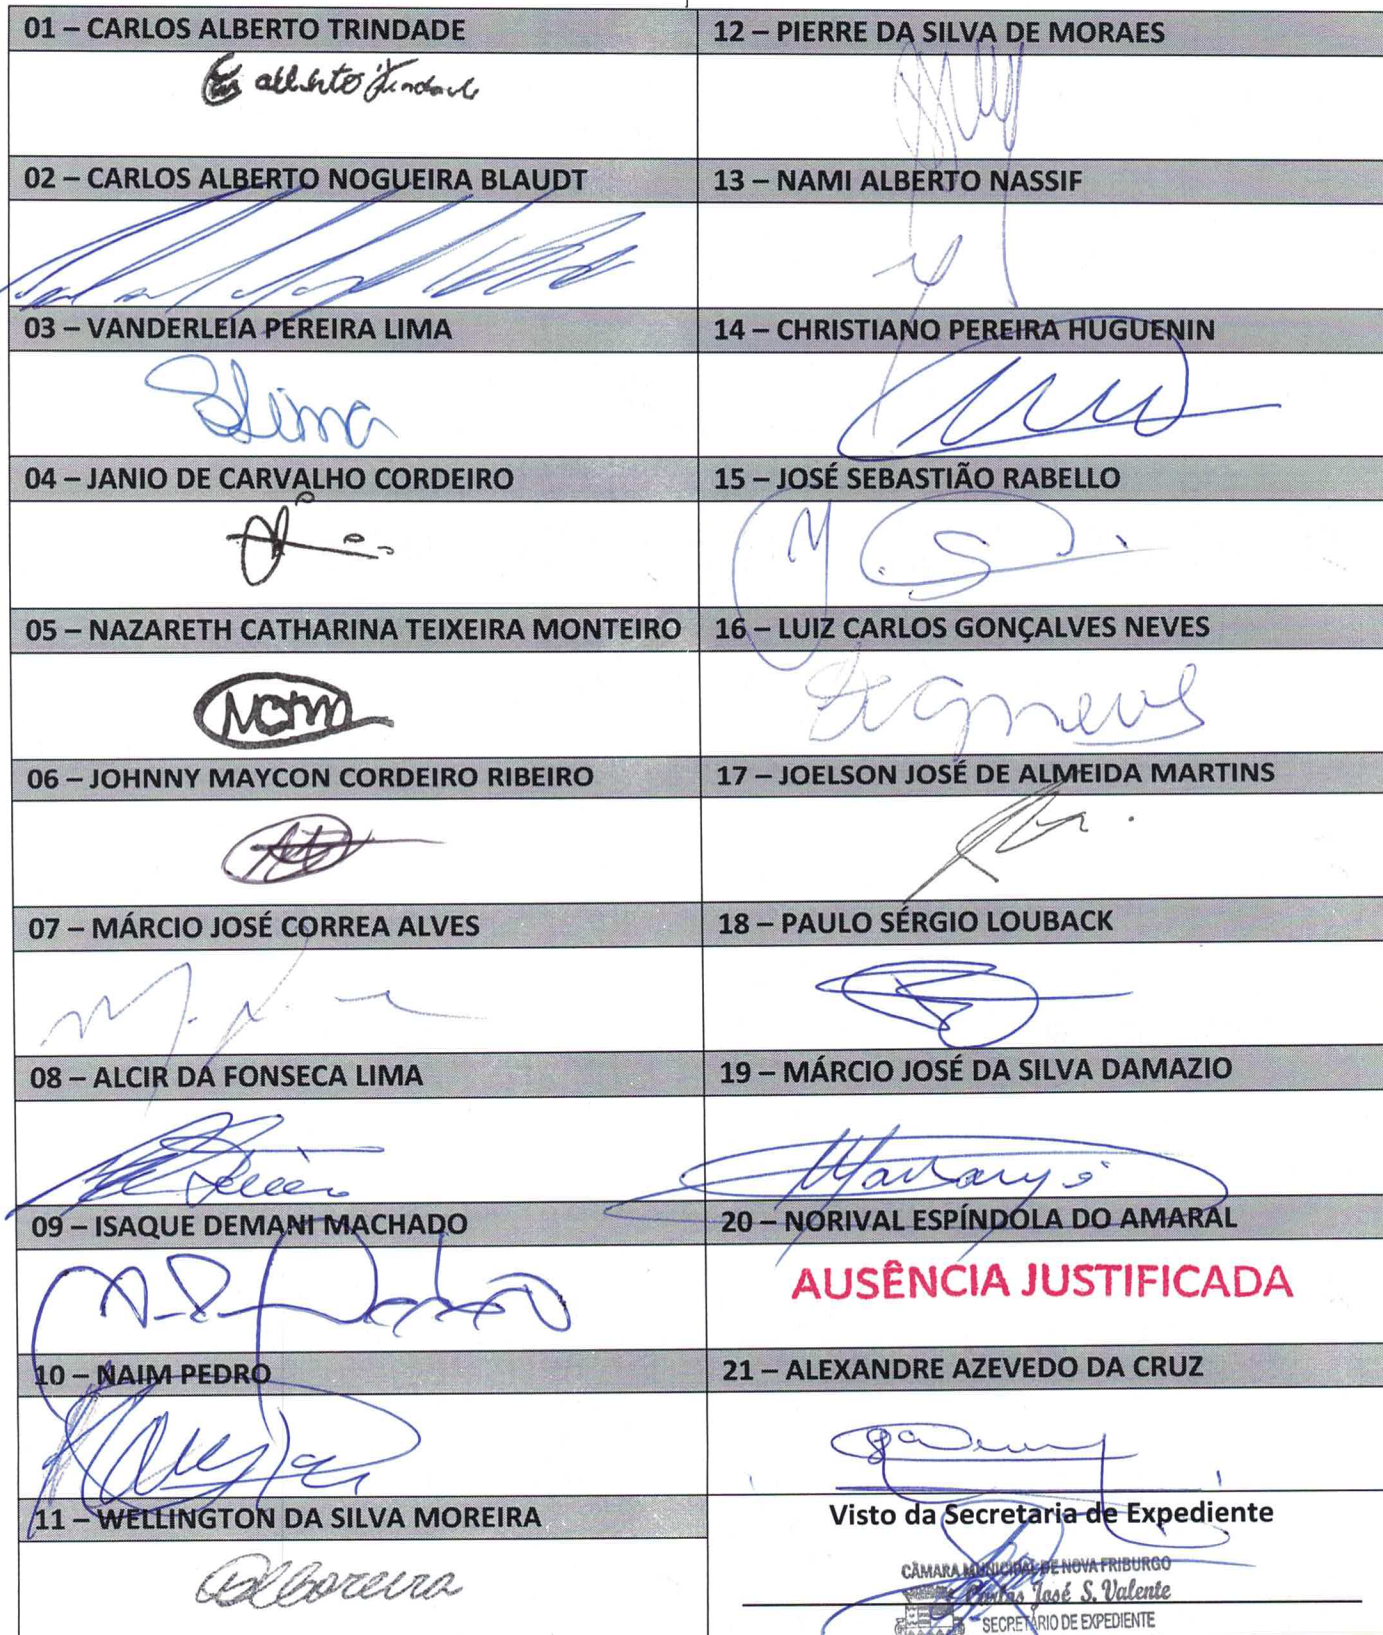 01 – CARLOS ALBERTO TRINDADE
alberto Trindade
02 – CARLOS ALBERTO NOGUEIRA BLAUDT
03 – VANDERLEIA PEREIRA LIMA
Lima
04 – JANIO DE CARVALHO CORDEIRO
05 – NAZARETH CATHARINA TEIXEIRA MONTEIRO
NCTM
06 – JOHNNY MAYCON CORDEIRO RIBEIRO
07 – MÁRCIO JOSÉ CORREA ALVES
08 – ALCIR DA FONSECA LIMA
09 – ISAQUE DEMANI MACHADO
10 – NAIM PEDRO
11 – WELLINGTON DA SILVA MOREIRA
12 – PIERRE DA SILVA DE MORAES
13 – NAMI ALBERTO NASSIF
14 – CHRISTIANO PEREIRA HUGUENIN
15 – JOSÉ SEBASTIÃO RABELLO
16 – LUIZ CARLOS GONÇALVES NEVES
17 – JOELSON JOSÉ DE ALMEIDA MARTINS
18 – PAULO SÉRGIO LOUBACK
19 – MÁRCIO JOSÉ DA SILVA DAMAZIO
20 – NORIVAL ESPÍNDOLA DO AMARAL
AUSÊNCIA JUSTIFICADA
21 – ALEXANDRE AZEVEDO DA CRUZ
Visto da Secretaria de Expediente
CÂMARA MUNICIPAL DE NOVA FRIBURGO
Carlos José S. Valente
SECRETÁRIO DE EXPEDIENTE